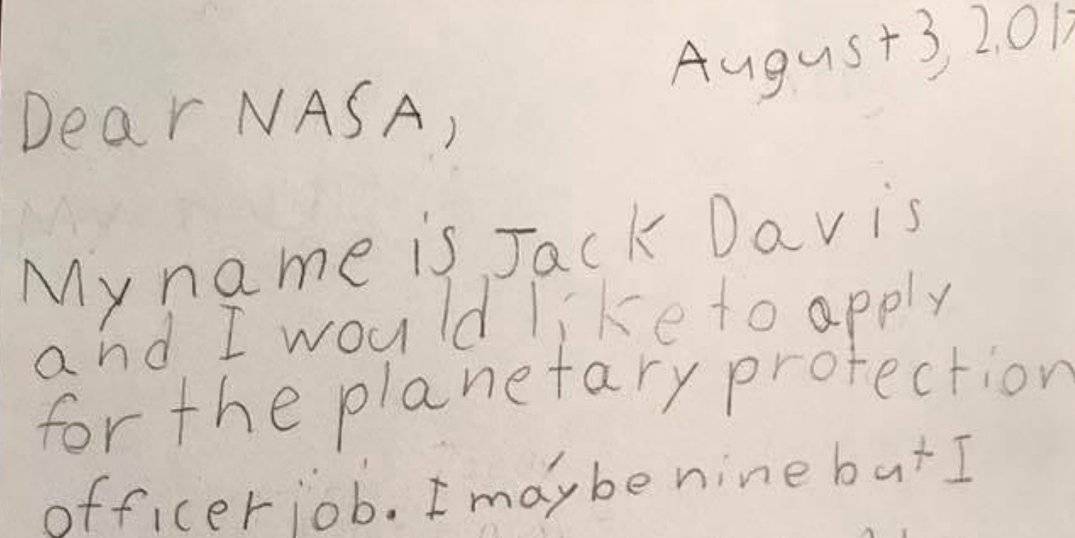 August 3, 2017
Dear NASA,
My name is Jack Davis
and I would like to apply
for the planetary protection
officer job. I may be nine but I